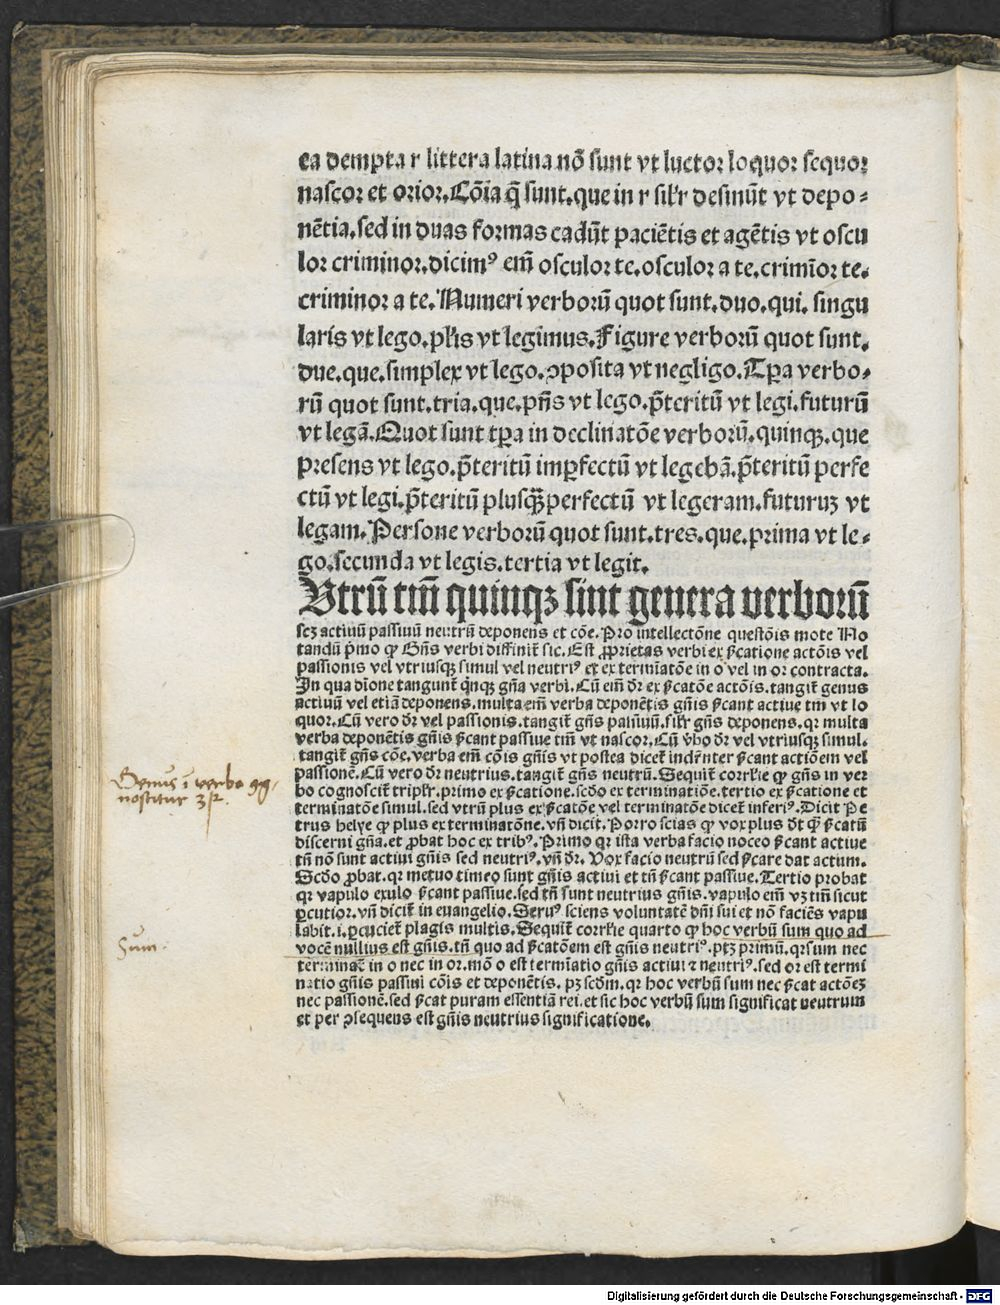 ea dempta r littera latina nō sunt vt luctor loquor sequor
nascor et orior. Cōia q̄ sunt. que in r silr̄ desinūt vt depo⸗
nētia. sed in duas formas cadūt paciētis et agētis vt oscu
lor criminor. dicimꝰ em̄ osculor te. osculor a te. crimīor te.
criminor a te. Numeri verborū quot sunt. duo. qui. singu
laris vt lego. pl̄is vt legimus. Figure verborū quot sunt.
due. que. simplex vt lego. ꝯposita vt negligo. Tꝑa verbo⸗
rū quot sunt. tria. que. pn̄s vt lego. p̄teritū vt legi. futurū
vt legā. Quot sunt tꝑa in declinatōe verborū. quinqꝫ. que
presens vt lego. p̄teritū imꝑfectū vt legebā. p̄teritū perfe
ctū vt legi. p̄teritū plusq̄ꝫperfectū vt legeram. futuruꝫ vt
legam. Persone verborū quot sunt. tres. que. prima vt le⸗
go. secunda vt legis. tertia vt legit.
Vtrū tm̄ quinqꝫ sint genera verborū
scꝫ actiuū passiuū neutrū deponens et cōe. Pro intellectōne questōis mote No
tandū p̄mo ꝙ Gn̄s verbi diffinit̄ sic. Est ꝓprietas verbi ex s̄catione actōis vel
passionis vel vtriusqꝫ simul vel neutriꝰ et ex termīatōe in o vel in or contracta.
In qua dīone tangunt̄ q̄nqꝫ gn̄a verbi. Cū em̄ dr̄ ex s̄catōe actōis. tangit̄ genus
actiuū vel etiā deponens. multa em̄ verba deponētis gn̄is s̄cant actiue tm̄ vt lo
quor. Cū vero dr̄ vel passionis. tangit̄ gn̄s passiuū. silr̄ gn̄s deponens. qr multa
verba deponētis gn̄is s̄cant passiue tm̄ vt nascor. Cū v̄bo dr̄ vel vtriusqꝫ simul.
tangit̄ gn̄s cōe. verba em̄ cōis gn̄is vt postea dicet̄ indr̄nter s̄cant actiōem vel
passionē. Cū vero dr̄ neutrius. tangit̄ gn̄s neutrū. Sequit̄ correl̄ie ꝙ gn̄s in ver
bo cognoscit̄ triplr̄. primo ex s̄catione. scd̄o ex terminatiōe. tertio ex s̄catione et
terminatōe simul. sed vtrū plus ex s̄catōe vel terminatōe dicet̄ inferiꝰ. Dicit Pe
trus helye ꝙ plus ex terminatōne. vn̄ dicit. Porro scias ꝙ vox plus dt̄ q̄ꝫ s̄catū
discerni gn̄a. et ꝓbat hoc ex tribꝰ. Primo qr ista verba facio noceo s̄cant actiue
tn̄ nō sunt actiui gn̄is sed neutriꝰ. vn̄ dr̄. Vox facio neutrū sed s̄care dat actum.
Scd̄o ꝓbat. qr metuo timeo sunt gn̄is actiui et tn̄ s̄cant passiue. Tertio probat
qr vapulo exulo s̄cant passiue. sed tn̄ sunt neutrius gn̄is. vapulo em̄ vꝫ tm̄ sicut
ꝑcutior. vn̄ dicit̄ in euangelio. Seruꝰ sciens voluntatē dn̄i sui et nō faciēs vapu
labit. i. ꝑcuciet̄ plagis multis. Sequit̄ correl̄ie quarto ꝙ hoc verbū sum quo ad
vocē nullius est gn̄is. tn̄ quo ad s̄catōem est gn̄is neutriꝰ. ptꝫ primū. qr sum nec
terminat̄ in o nec in or. mō o est termīatio gn̄is actiui ⁊ neutriꝰ. sed or est termi
natio gn̄is passiui cōis et deponētis. pꝫ scd̄m. qr hoc verbū sum nec s̄cat actōeꝫ
nec passionē. sed s̄cat puram essentiā rei. et sic hoc verbū sum significat neutrum
et per ꝯsequens est gn̄is neutrius significatione.
Genus ī verbo ꝯg
noscitur 3pr
Sum
Digitalisierung gefördert durch die Deutsche Forschungsgemeinschaft - DFG